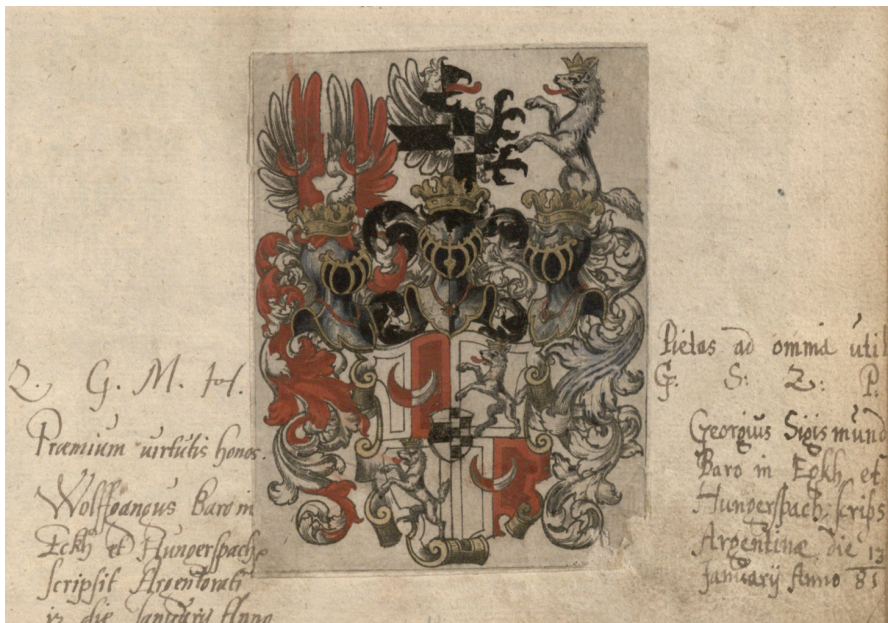 Z. G. M. H.
Præmium uirtutis honos.
Wolffgangus Baro in
Eckh et Hungerspach
scripsit Argentorati
die Januarij Anno
Pietas ad omnia util
G. S: Z: P.
Georgius Sigismund
Baro in Egkh et
Hungerspach scrips
Argentinæ die 13
Januarij Anno 81